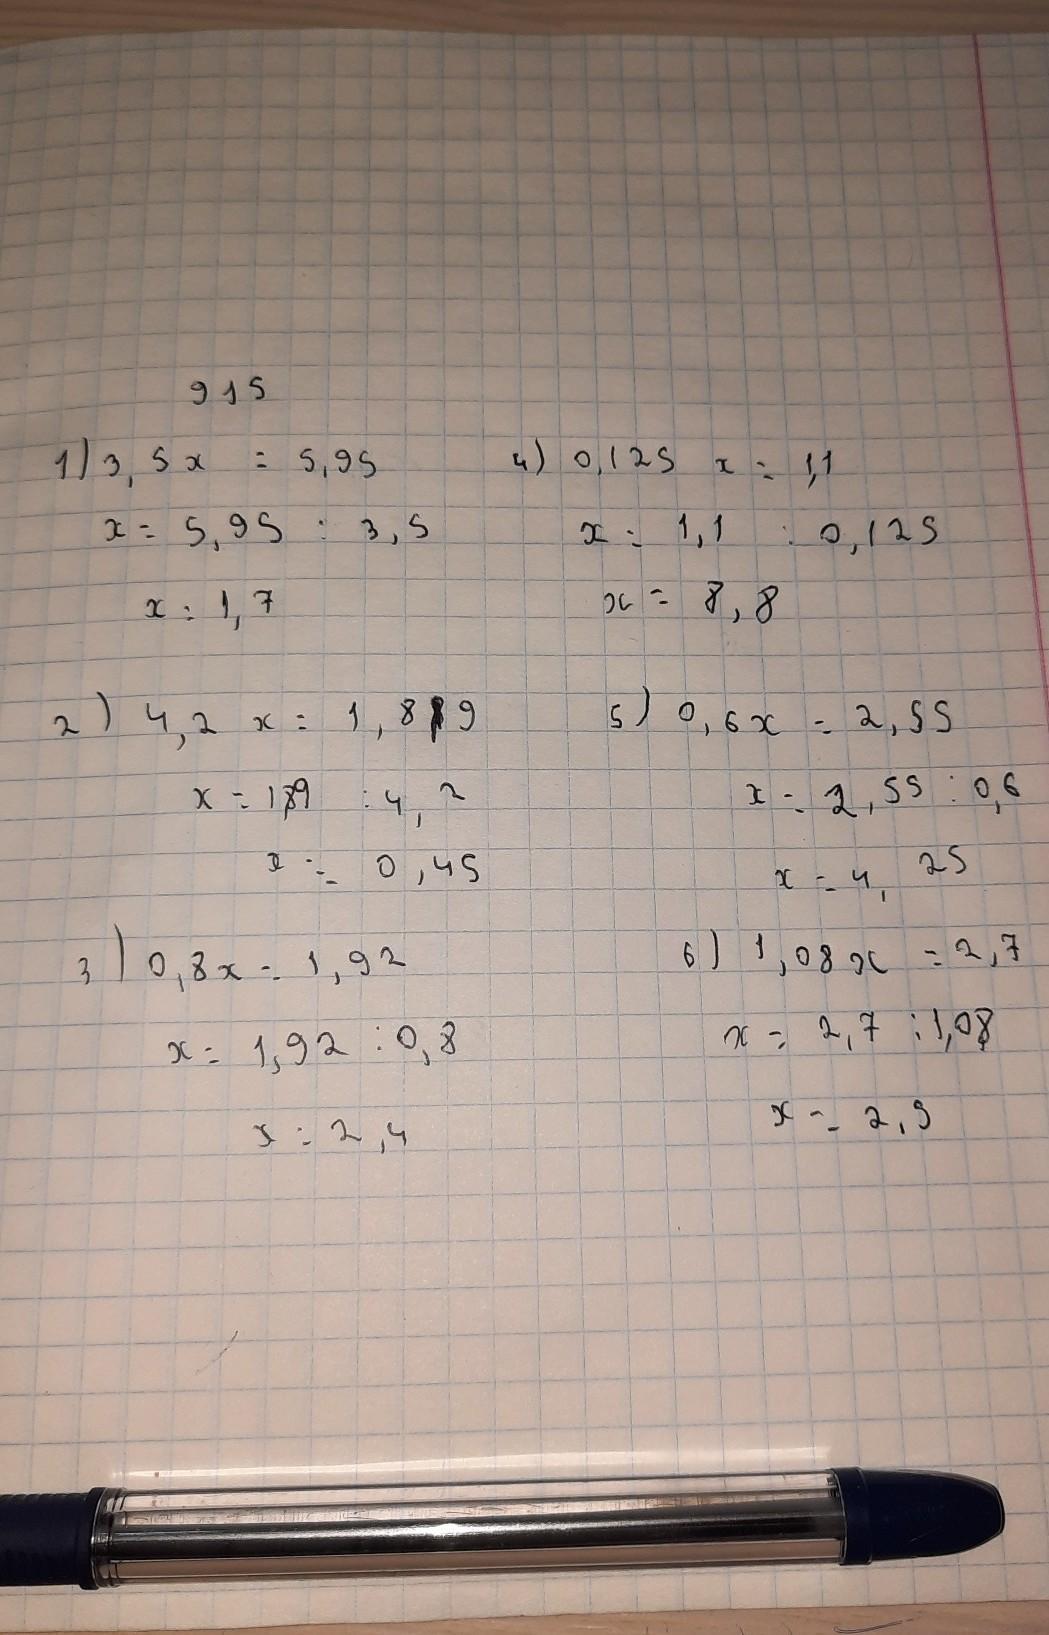 915
1) 3,5x = 5,95
x = 5,95 : 3,5
x = 1,7
2) 4,2 x = 1,89
x = 189 : 4,2
x = 0,45
3) 0,8x = 1,92
x = 1,92 : 0,8
x = 2,4
4) 0,125 x = 1,1
x = 1,1 : 0,125
x = 8,8
5) 0,6x = 2,55
x = 2,55 : 0,6
x = 4,25
6) 1,08x = 2,7
x = 2,7 : 1,08
x = 2,5